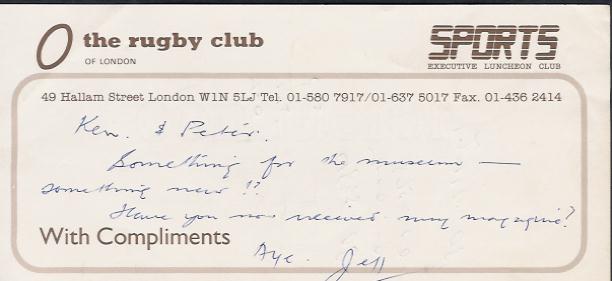 the rugby club
OF LONDON
SPORTS
EXECUTIVE LUNCHEON CLUB
49 Hallam Street London W1N 5LJ Tel. 01-580 7917/01-637 5017 Fax. 01-436 2414
Ken. & Peter.
Something for the museum —
something new !?
Have you now received my magazine?
With Compliments
Aye. Jeff